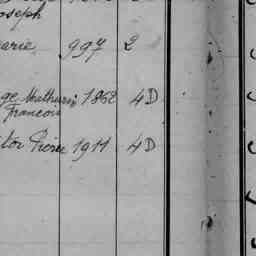 oseph
arie, 997 2
ge Mathurin 1862 4D
Francois
itor Pierre 1911 4D